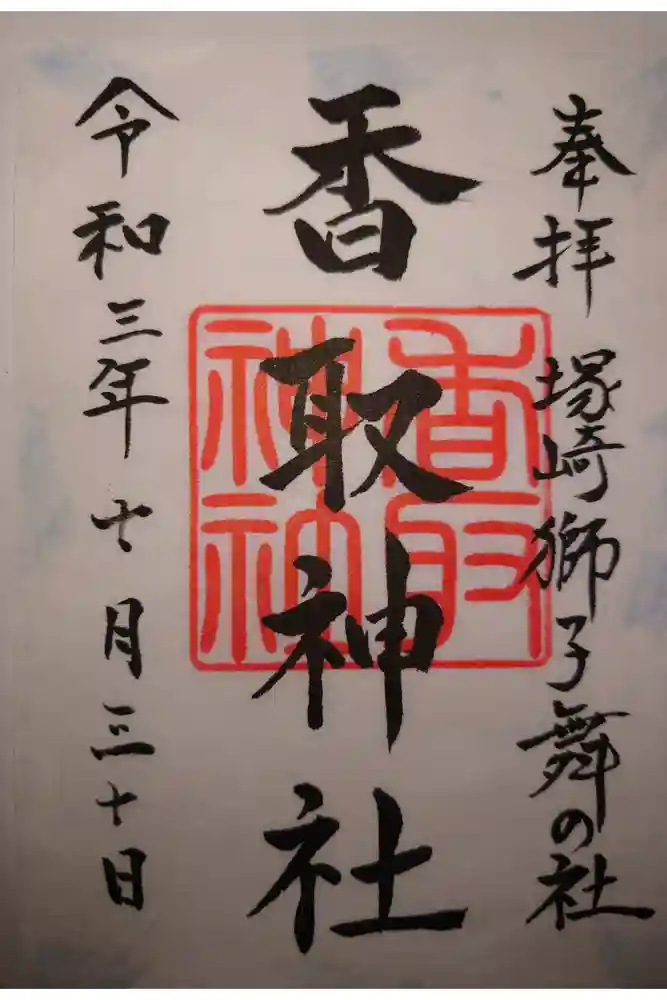 奉拝 塚崎獅子舞の社
香取神社
香取
神社
令和三年十月三十日